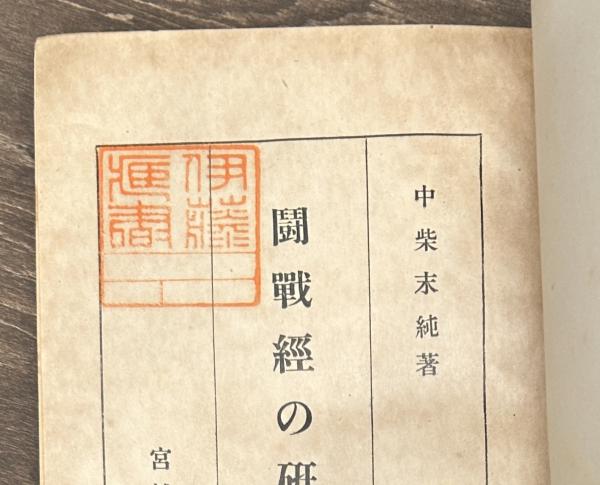 中柴末純著
鬪戰經の研
宮
伊藤
蔵書